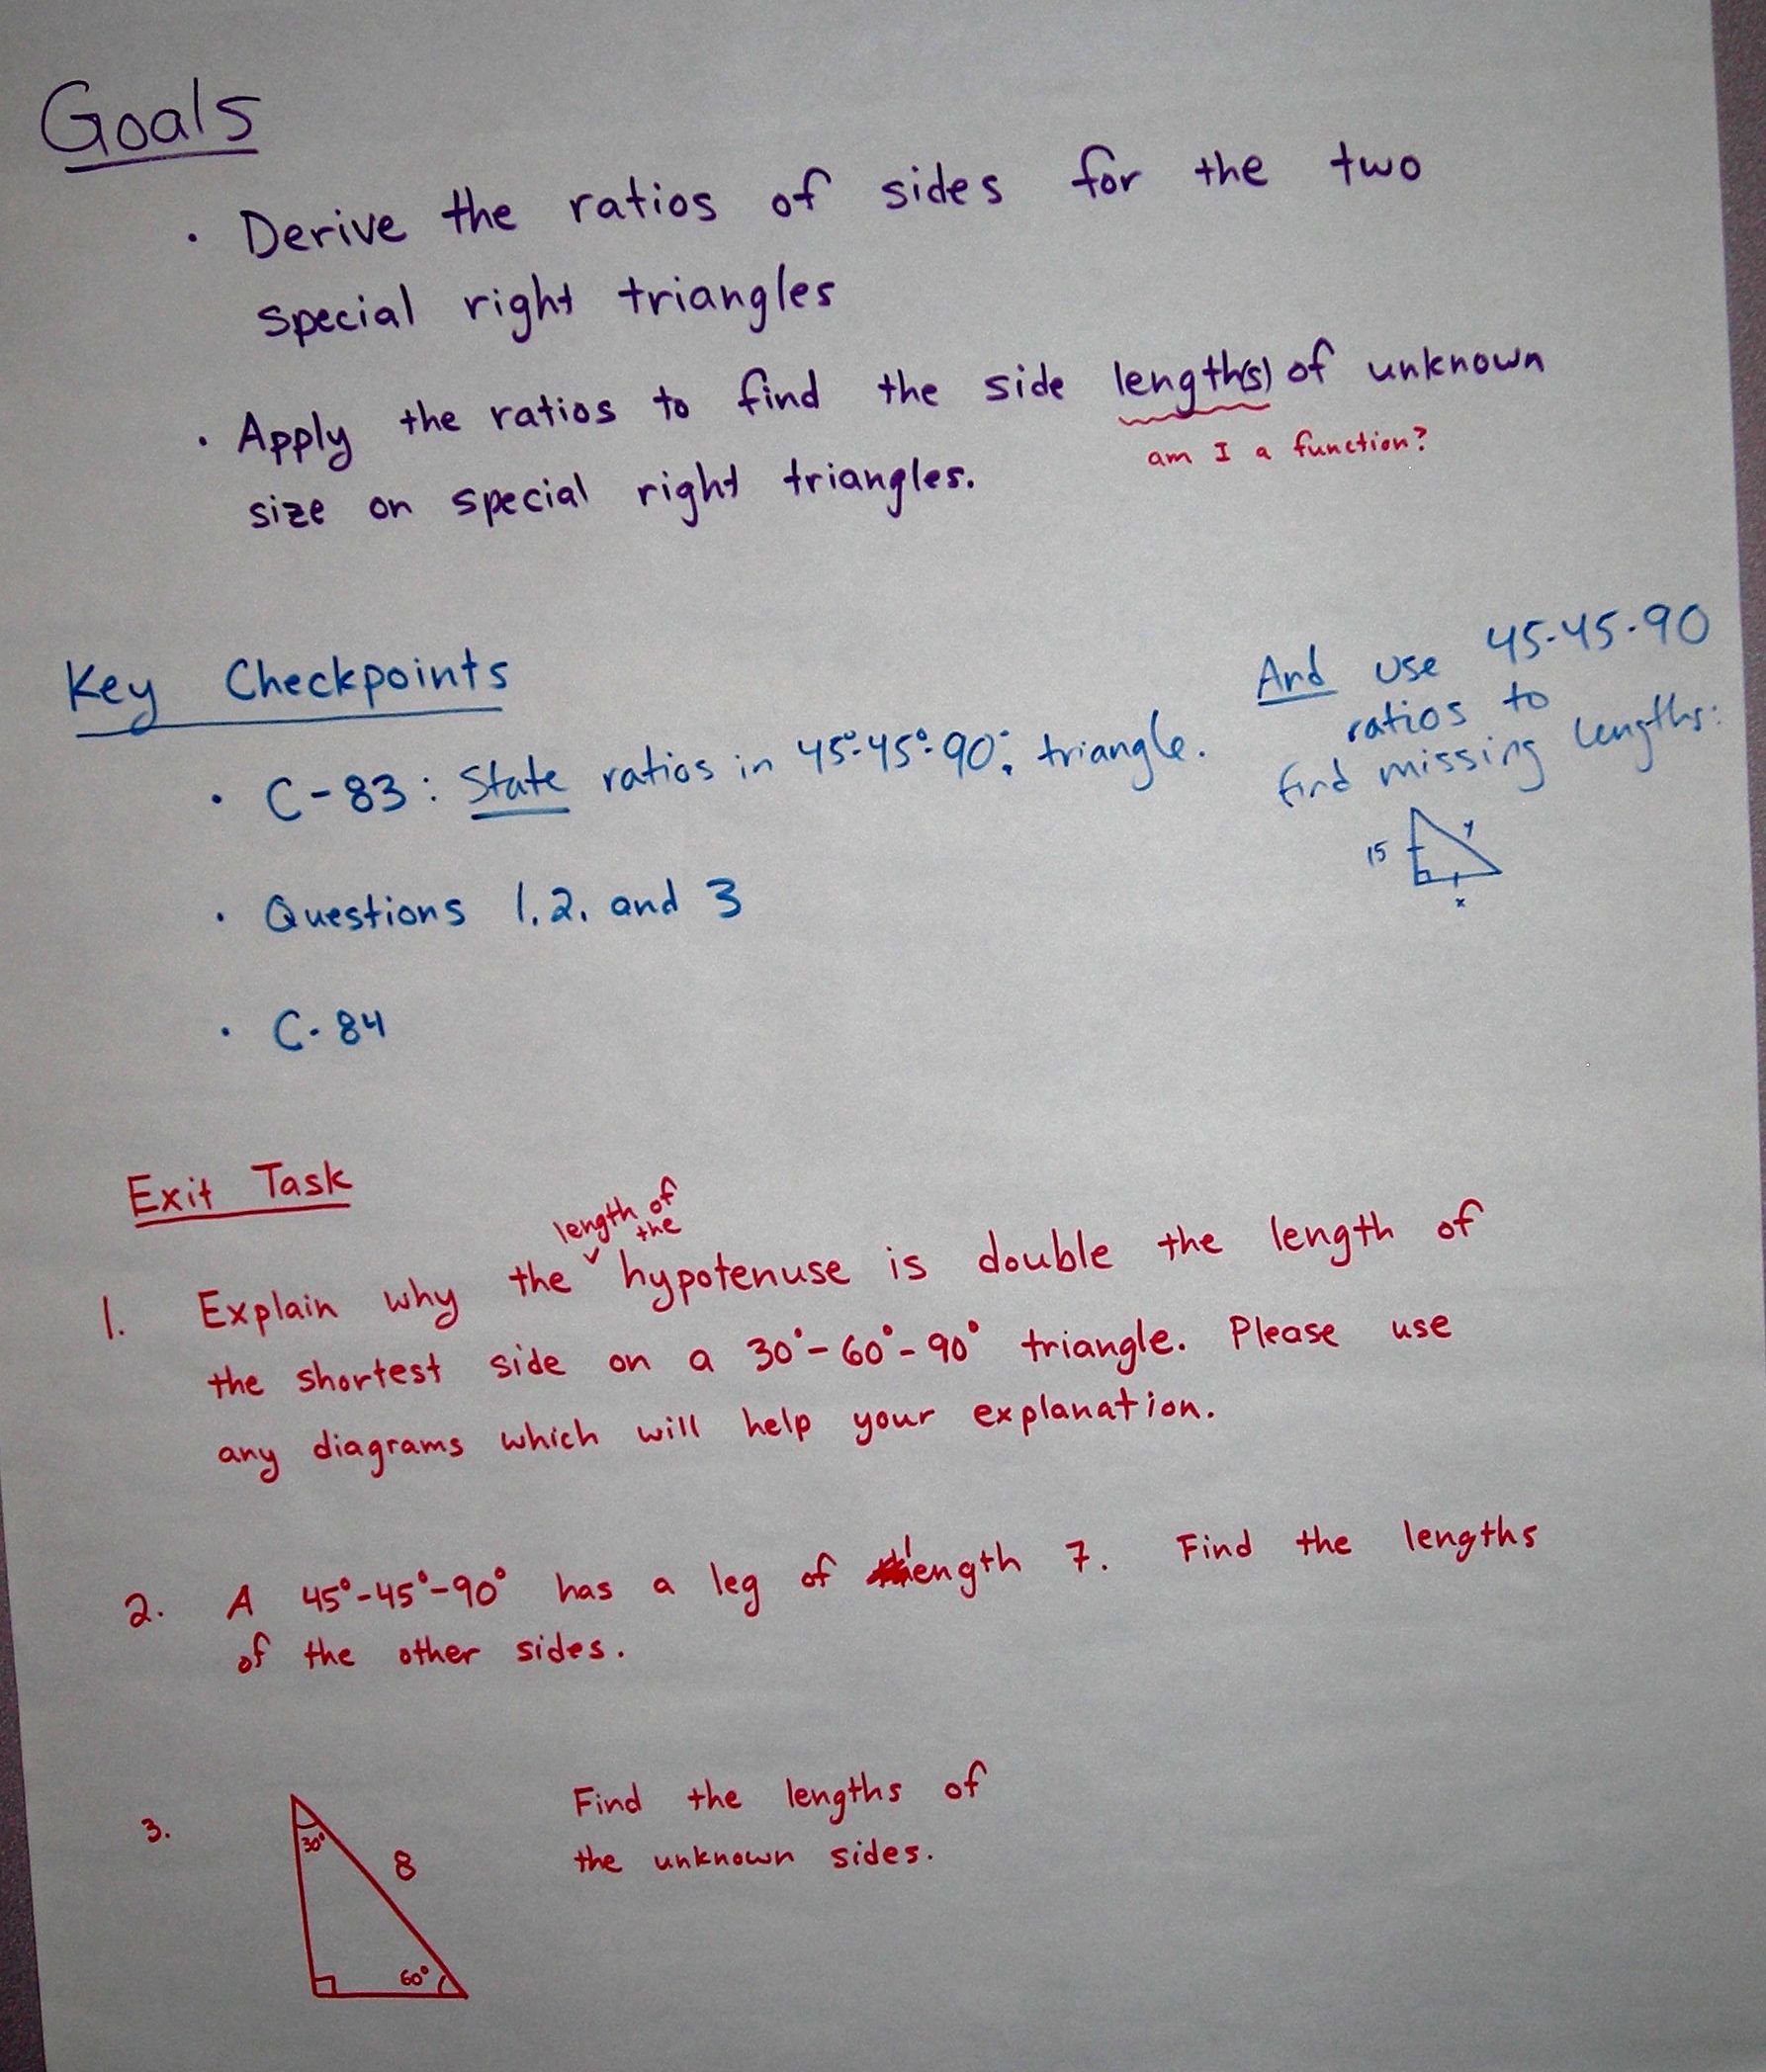 Goals
· Derive the ratios of sides for the two
special right triangles
· Apply the ratios to find the side length(s) of unknown
am I a function?
size on special right triangles.
Key Checkpoints
· C-83: State ratios in 45°-45°-90° triangle.
And use 45-45-90
ratios to
find missing lengths:
15
y
x
· Questions 1, 2, and 3
· C-84
Exit Task
length of
the
1. Explain why the hypotenuse is double the length of
the shortest side on a 30°-60°-90° triangle. Please use
any diagrams which will help your explanation.
2. A 45°-45°-90° has a leg of length 7. Find the lengths
of the other sides.
3.
30°
8
60°
Find the lengths of
the unknown sides.